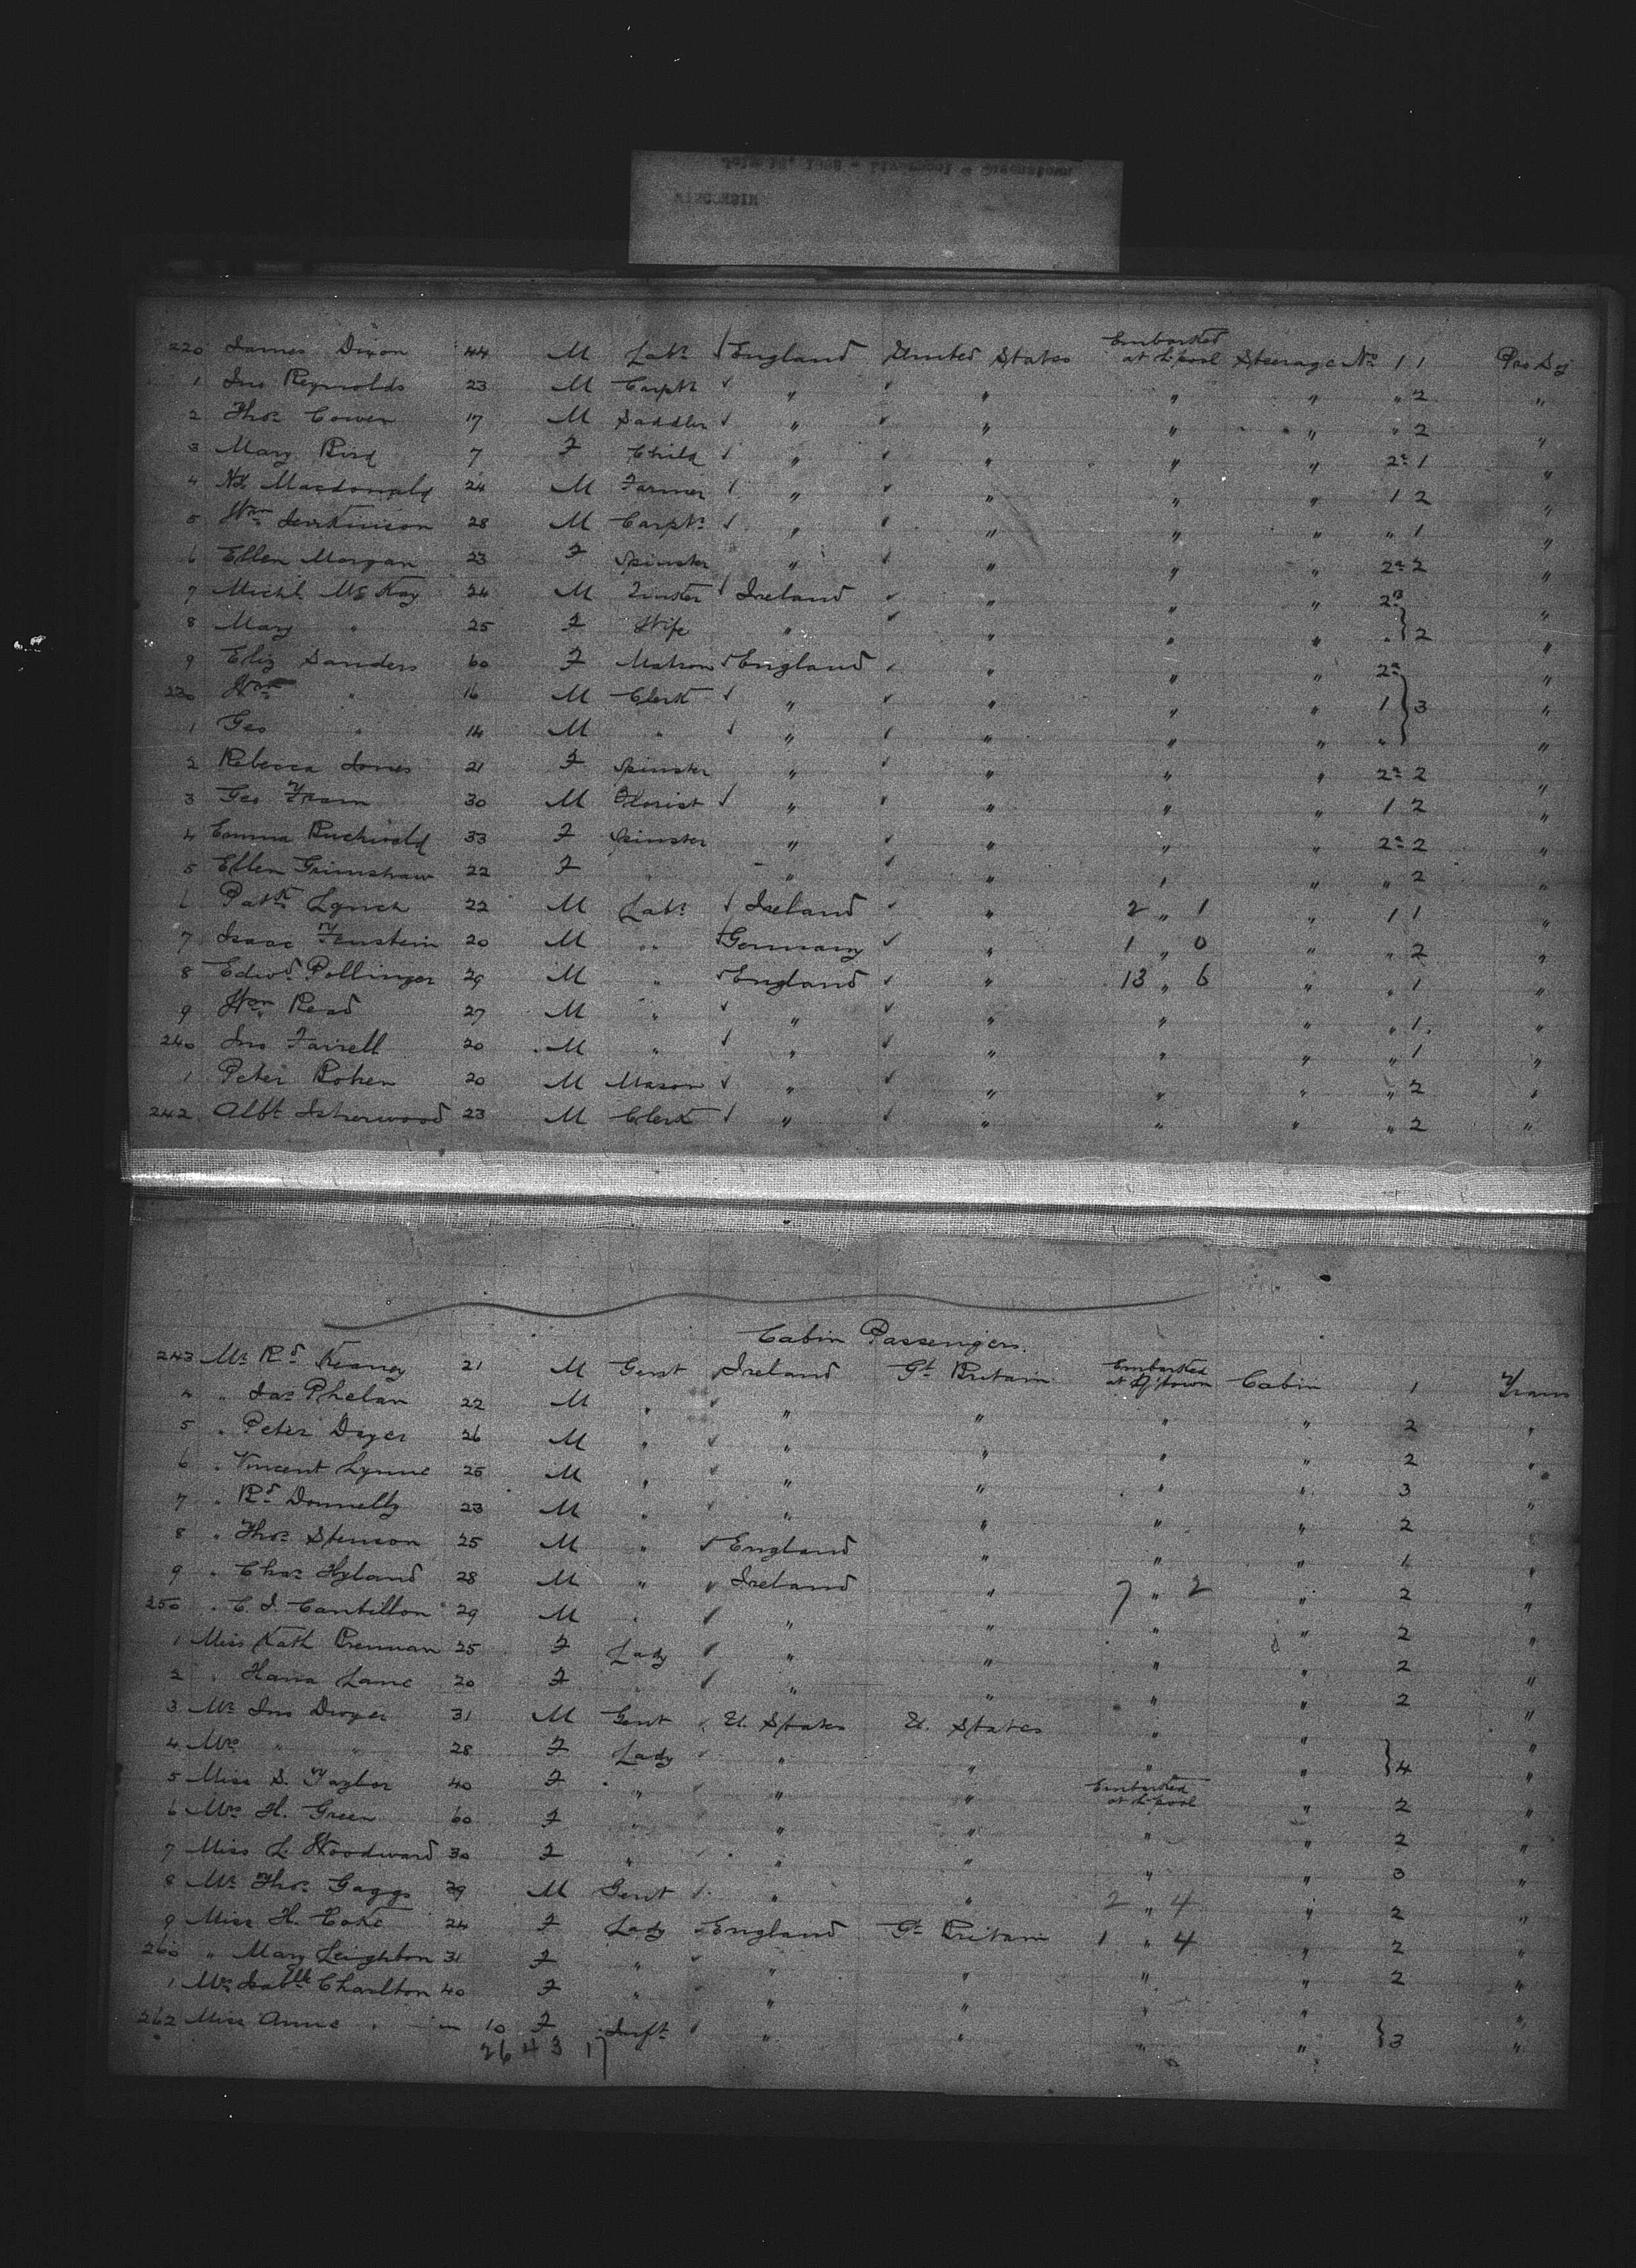 220 James Dixon 44 M Labr England United States Embarked at L'pool Steerage No 1 1 Pro Sj
1 Jno Reynolds 23 M Carptr " " " " " 2 "
2 Thos Cowen 17 M Saddler " " " " " 2 "
3 Mary Bird 7 F Child " " " " 2a 1 "
4 Nl Macdonald 24 M Farmer " " " " 1 2 "
5 Wm Jenkinson 28 M Carptr " " " " " 1 "
6 Ellen Morgan 23 F Spinster " " " " 2a 2 "
7 Michl McKay 24 M Ireland " " " 2a "
8 Mary " 25 F Wife " " " " " } 2 "
9 Eliz Sanders 60 F Matron England " " " 2a "
230 Wm " 16 M Clerk " " " " 1 } 3 "
1 Geo " 14 M " " " " " " "
2 Rebecca Jones 21 F Spinster " " " " 2a 2 "
3 Geo 30 M Florist " " " " 1 2 "
4 Emma Buchwald 33 F Spinster " " " " 2a 2 "
5 Ellen Grimshaw 22 F " " " " " " 2 "
6 Patk Lynch 22 M Labr Ireland " 2 " 1 " 1 1 "
7 Isaac 20 M " Germany " 1 " 0 " " 2 "
8 Edwd Pollinger 29 M " England " 13 " 6 " " 1 "
9 Wm Read 27 M " " " " " " 1 "
240 Jno Farrell 20 M " " " " " " 1 "
1 Peter Rohen 20 M Mason " " " " " 2 "
242 Albt Isherwood 23 M Clerk " " " " " 2 "
Cabin Passengers.
243 Mr Rd Kearney 21 M Gent Ireland Gt Britain Embarked at Q'town Cabin 1 Trans
4 " Jas Phelan 22 M " " " " " 2 "
5 " Peter Dwyer 26 M " " " " " 2 "
6 " Vincent Lynne 25 M " " " " " 3 "
7 " Rd Donnelly 23 M " " " " " 2 "
8 " Thos Stenson 25 M " England " " " 1 "
9 " Chas Hyland 28 M " Ireland " 7 " 2 " 2 "
250 " C. J. Cantillon 29 M " " " " " 2 "
1 Miss Kath Brennan 25 F Lady " " " " 2 "
2 " Hana Lane 20 F " " " " " 2 "
3 Mr Jno Dwyer 31 M Gent U. States U. States " " "
4 Mrs " " 28 F Lady " " " " } 4 "
5 Miss S. Taylor 40 F " " " Embarked at L'pool " 2 "
6 Mrs H. Green 60 F " " " " " 2 "
7 Miss L. Woodward 30 F " " " " " 3 "
8 Mr Thos Gaggs 29 M Gent " " 2 " 4 " 2 "
9 Miss H. Cohe 24 F Lady England Gt Britain 1 " 4 " 2 "
260 " Mary Leighton 31 F " " " " " 2 "
1 Mrs Isablle Charlton 40 F " " " " " "
262 Miss Anne " 10 F Inft " " " " } 3 "
26 4 3 17